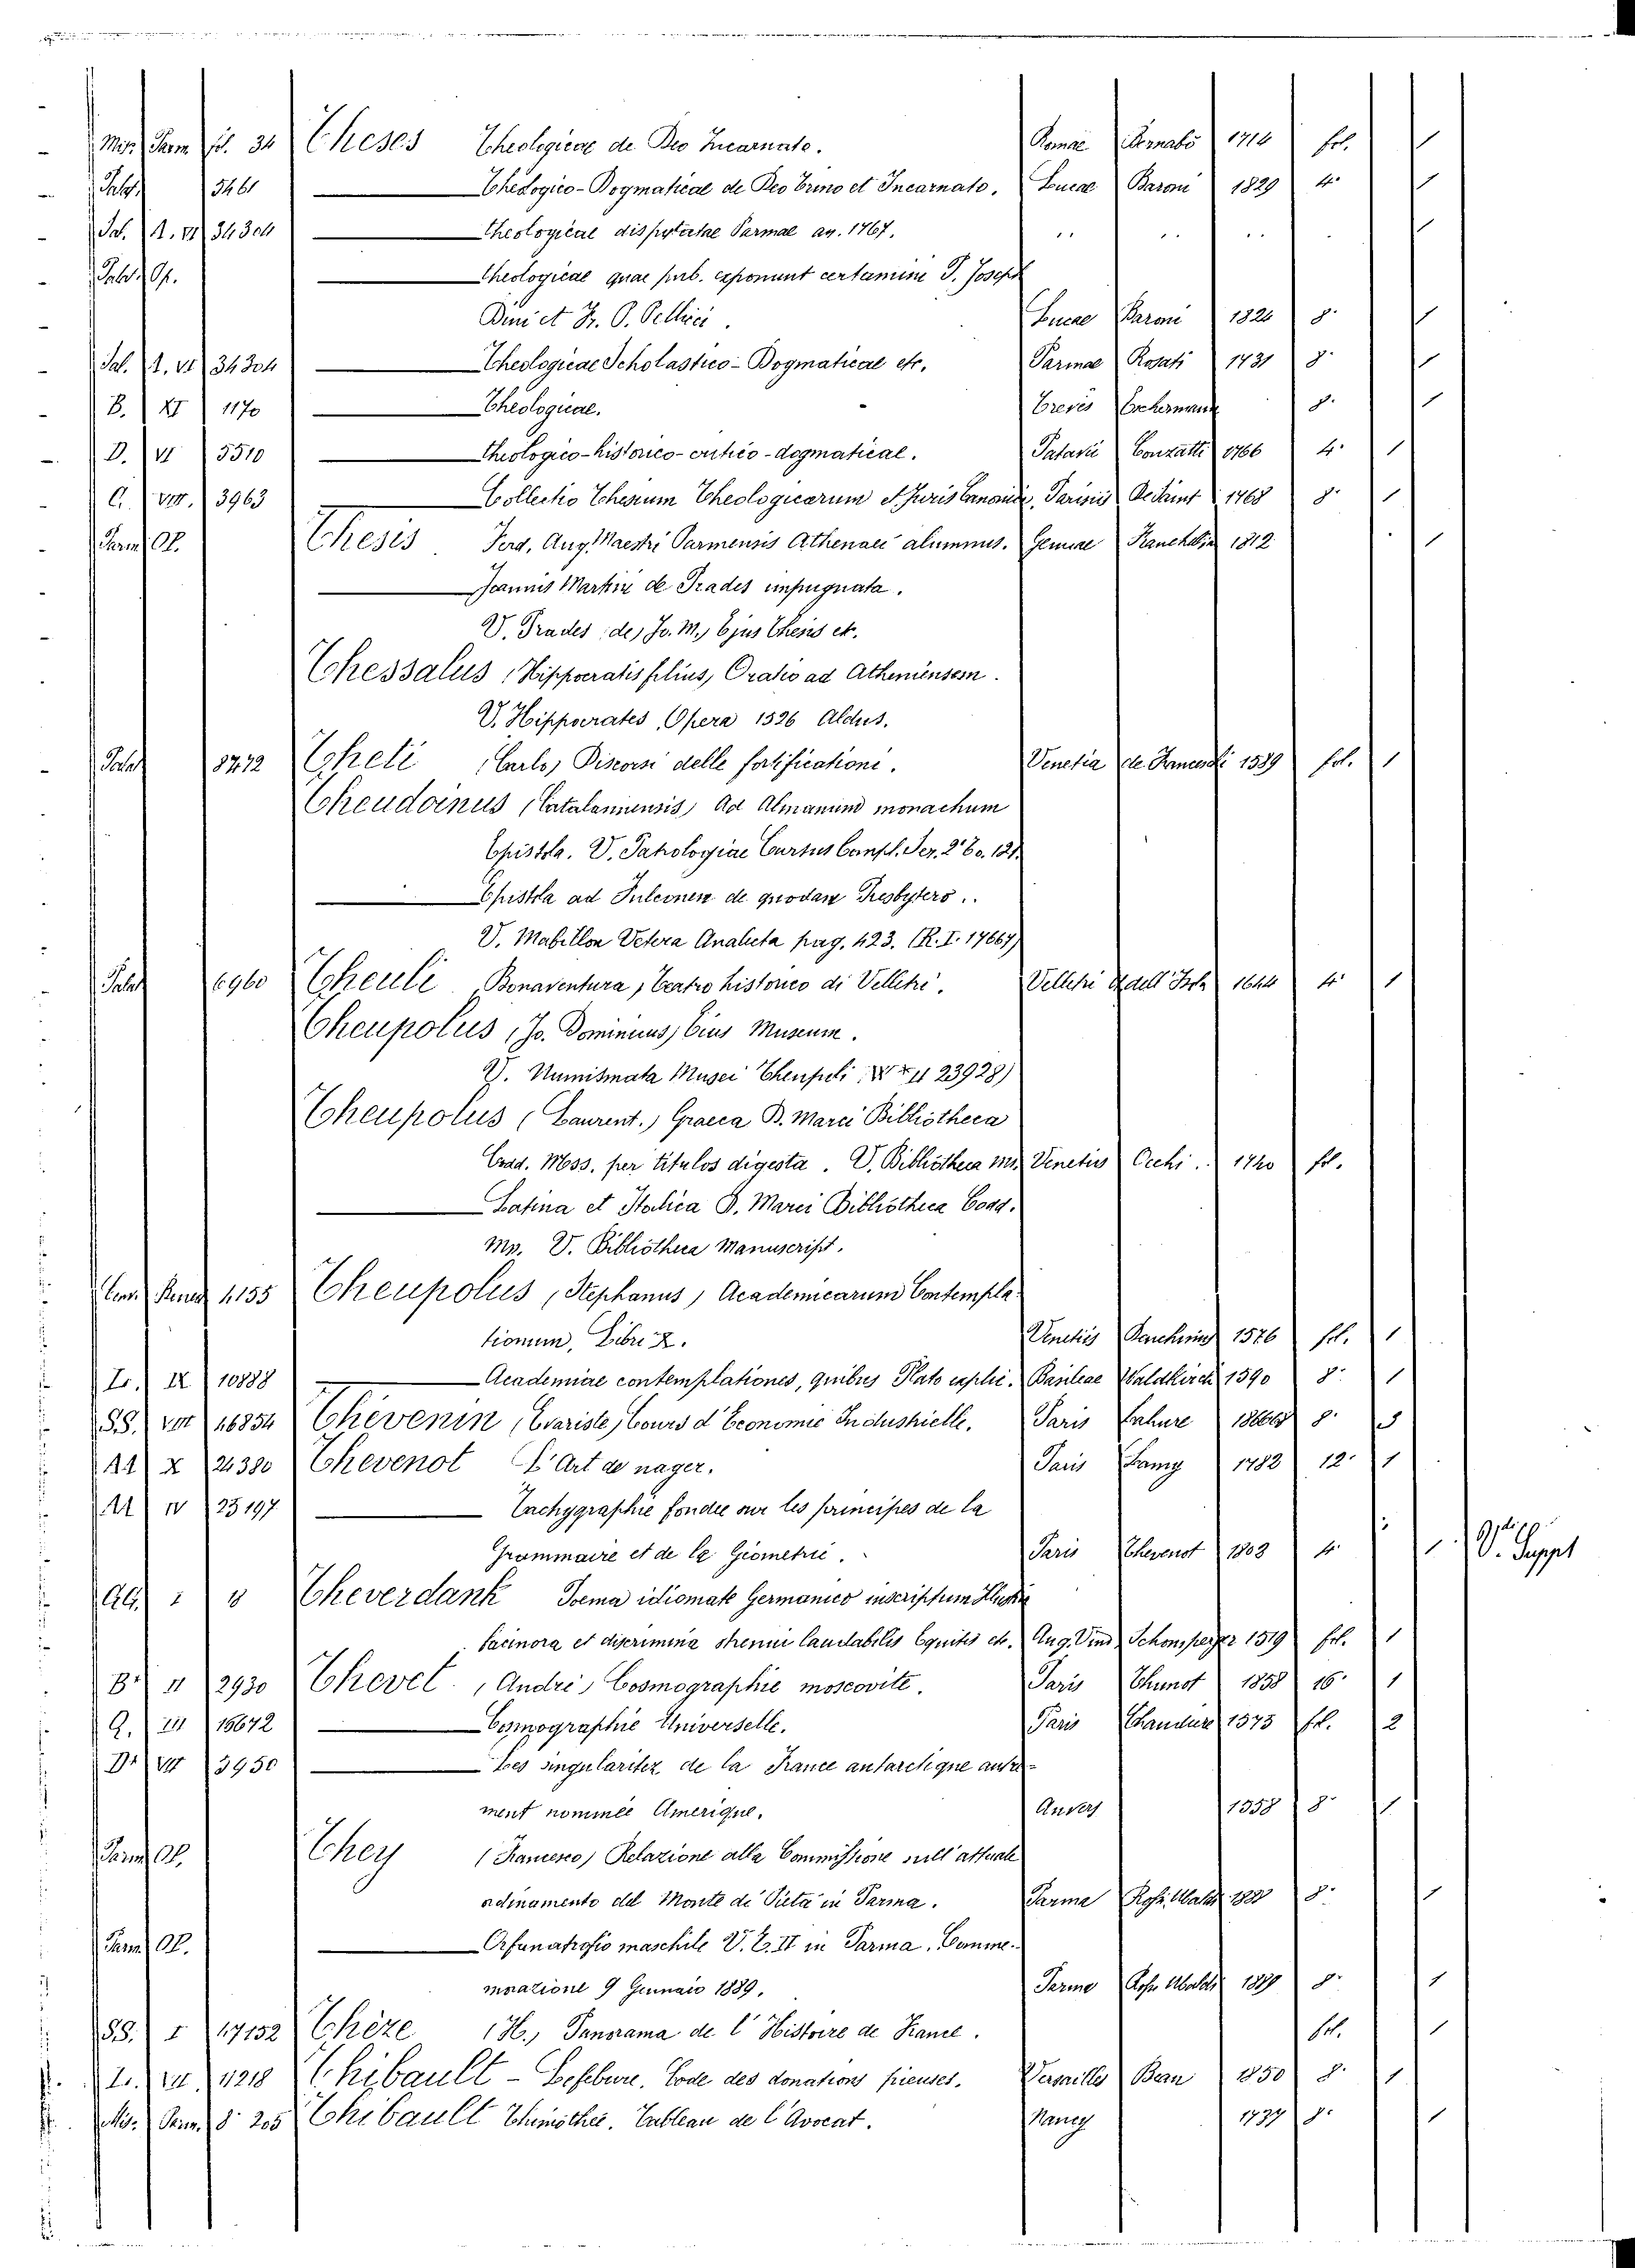 Theses Theologicae de Deo Incarnato. Romae Bernabò 1714 fol. 1
Palat. 5461 Theologico-Dogmaticae de Deo Trino et Incarnato. Lucae Baroni 1829 4º 1
Sal. A. VI 34304 theologicae disputatae Parmae an. 1767. 1
theologicae quae pub. exponunt certamini S. Joseph
Dini et Fr. P. Pellici. Lucae Baroni 1826 8º 1
Sal. A. VI 34304 Theologicae Scholastico-Dogmaticae etc. Parmae Rosati 1731 8º 1
B. XI 1170 Theologicae. Treves 8º 1
D. VI 5510 theologico-historico-critico-dogmaticae. Patavii Conzatti 1766 4º 1
C. VIII. 3963 Collectio Thesium Theologicarum et Juris Canonici. Parisiis 1768 8º 1
Parm. Of. Thesis Ferd. Aug. Maestri Parmensis Athenaei alumnus. Genuae 1812 1
Joannis Martin de Prades impugnata.
V. Prades (de) Jo. M., Ejus Thesis etc.
Thessalus, Hippocratis filius, Oratio ad Atheniensem.
V. Hippocrates, Opera 1526 Aldus.
Palat. 8742 Theti (Carlo) Discorsi delle fortificationi. Venetia de Franceschi 1589 fol. 1
Theudoinus (Catalaunensis) Ad Almanum monachum
Epistola. V. Patrologiae Cursus Compl. Ser. 2ª To. 121.
Epistola ad Guleonem de quodam Presbytero.
V. Mabillon Vetera Analecta pag. 423. (R. I. 17667)
Palat. 6960 Theuli (Bonaventura) Teatro historico di Velletri. Velletri dell' Isola 1644 4º 1
Theupolus (Jo. Dominicus) Eius Museum.
V. Numismata Musei Theupoli 23928)
Theupolus (Laurent.) Graeca D. Marci Bibliotheca
Codd. Mss. per titulos digesta. V. Bibliotheca ms. Venetiis Occhi 1740 fol.
Latina et Italica D. Marci Bibliotheca Codd.
Ms. V. Bibliotheca Manuscript.
4155 Theupolus (Stephanus) Academicarum Contempla-
tionum, Libri X. Venetiis 1576 fol. 1
LL. IX 10888 Academicae contemplationes, quibus Plato explic. Basileae Waldkirch 1590 8º 1
SS. VIII 16854 Thevenin (Evariste) Cours d'Economie Industrielle. Paris Lahure 8º 5
AA X 24380 Thevenot L'Art de nager. Paris Lamy 1782 12º 1
AA IV 23197 Tachygraphie fondée sur les principes de la
Grammaire et de la Géometrie. Paris Thevenot 1803 4º 1 V. Suppl
AA I 8 Theverdank Poema idiomate Germanico inscriptum Illustria
facinora et discrimina strenui laudabilis Equitis etc. Aug. Vind. Schonsperger 1519 fol. 1
Bº II 2930 Thevet (André) Cosmographie moscovite. Paris 1858 16º 1
Q. III 15672 Cosmographie Universelle. Paris Chaudiere 1575 fol. 2
Dº VII 3950 Les singularitez de la France antarctique autre-
ment nommée Amerique. Anvers 1558 8º 1
Parm. Of. They (Francesco) Relazione alla Commissione sull' attuale
ordinamento del Monte di Pietà in Parma. Parma Rossi Ubaldi 8º 1
Parm. Of. Orfanatrofio maschile V. E. II in Parma. Comme-
morazione 9 Gennaio 1889. Parma Rossi Ubaldi 1889 8º 1
SS. I 17152 Thèze (H.) Panorama de l'Histoire de France. fol. 1
LL. VII 11218 Thibault-Lefebure. Code des donations pieuses. Versailles Beau 1850 8º 1
Mis. Parm. 8º 205 Thibault Thimothée. Tableau de l'Avocat. Nancy 1737 8º 1